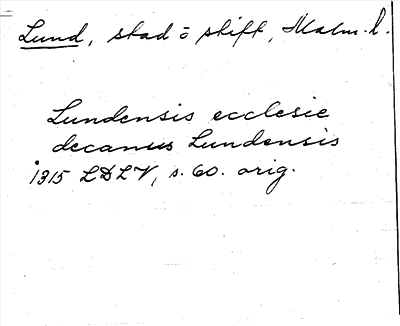 Lund, stad o stift, Malm. l.
Lundensis ecclesie
decanus Lundensis
1315 LDLV, s. 60. orig.